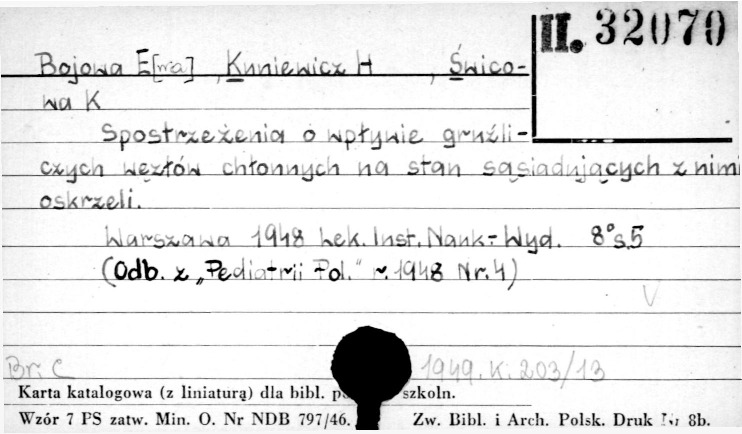 II. 32070
Bojowa E[wa], Kuniewicz H , Świco-
wa K
Spostrzeżenia o wpływie gruźli-
czych węzłów chłonnych na stan sąsiadujących z nimi
oskrzeli.
Warszawa 1948 Lek. Inst. Nauk.-Wyd. 8° s.5
(Odb. z „Pediatrii Pol." r. 1948 Nr. 4)
V
Br. C 1949. K. 203/13
Karta katalogowa (z liniaturą) dla bibl. szkoln.
Wzór 7 PS zatw. Min. O. Nr NDB 797/46. Zw. Bibl. i Arch. Polsk. Druk Nr 8b.